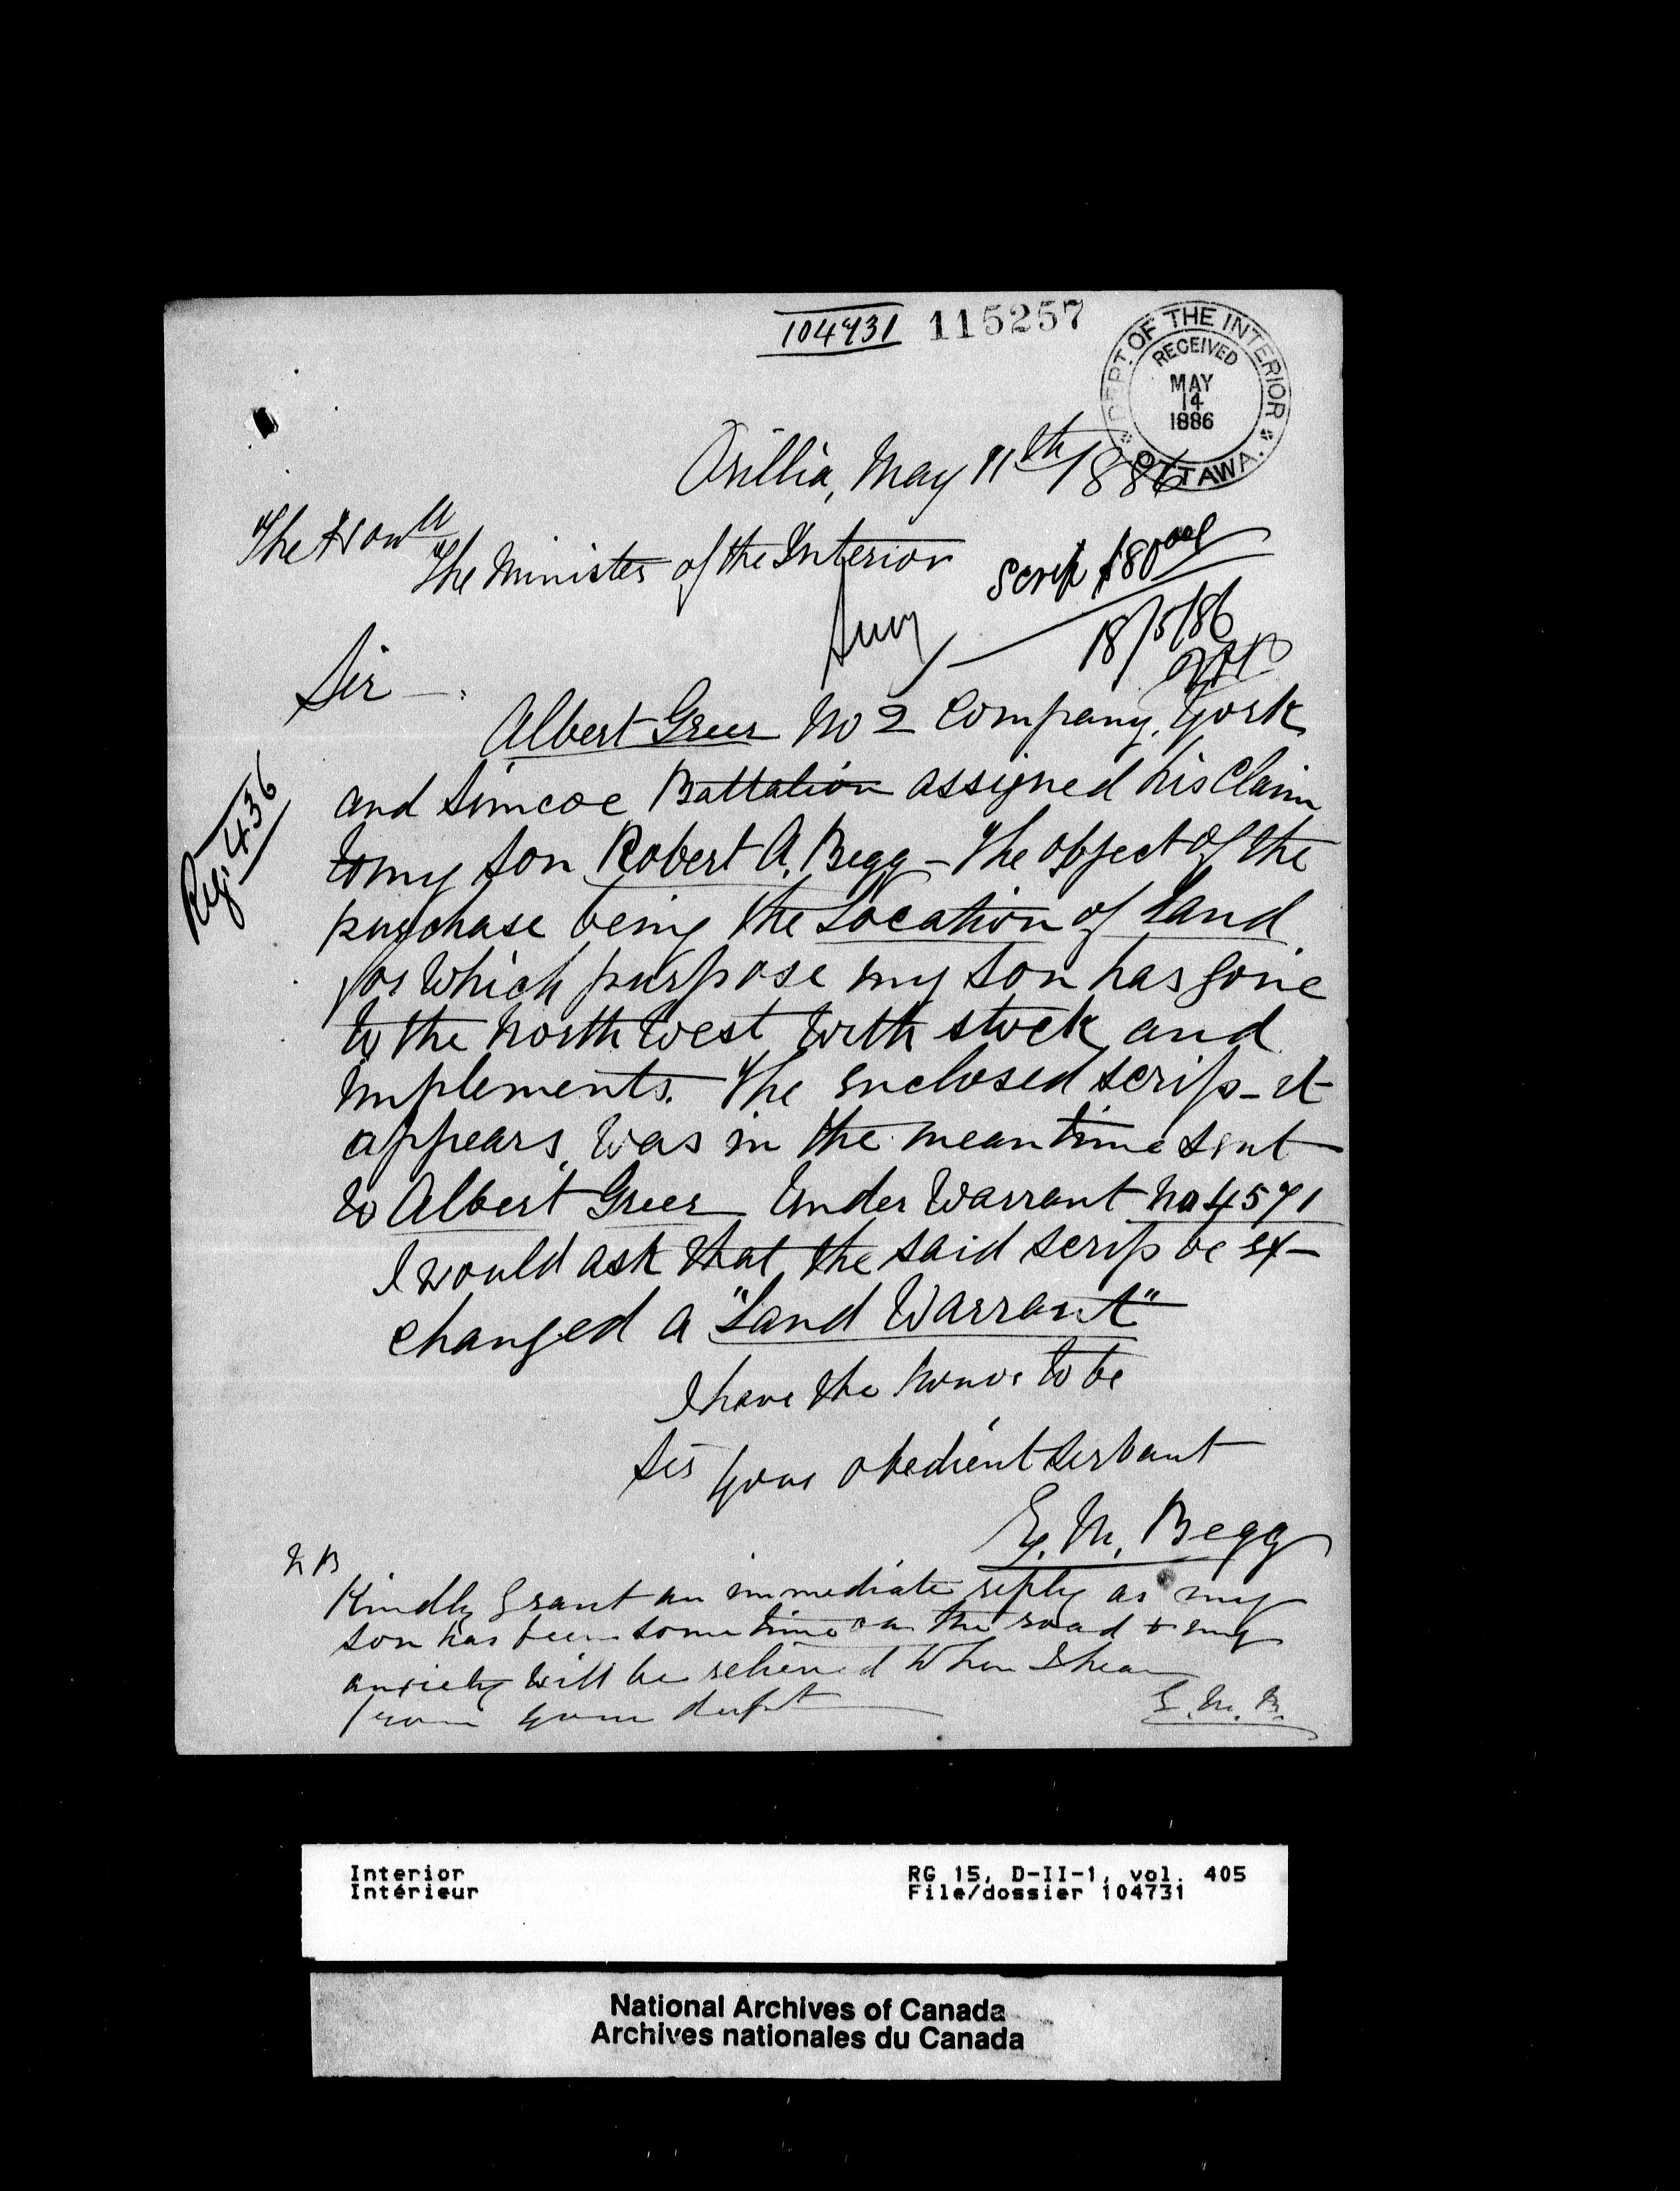 104731 115257
DEPT OF THE INTERIOR
RECEIVED
MAY
14
1886
OTTAWA.
Orillia, May 11th 1886
The Honbl
The Minister of the Interior
Scrip $80
18/5/86
Sir —:
Albert Greer No 2 Company, York
and Simcoe Battalion assigned his Claim
Reg. 436
to my son Robert A. Begg – The object of the
purchase being the Location of Land
for which purpose my son has gone
to the North West with stock and
implements. The enclosed scrip – it
appears, was in the meantime sent
to Albert Greer Under Warrant No 4571
I would ask that the said scrip be ex-
changed a "Land Warrant"
I have the honor to be
Sir your obedient servant
E. M. Begg
N B
Kindly grant an immediate reply as my
son has been some time on the road & my
anxiety will be relieved when I hear
from your dept
E. M. B.
Interior RG 15, D-II-1, vol. 405
Intérieur File/dossier 104731
National Archives of Canada
Archives nationales du Canada